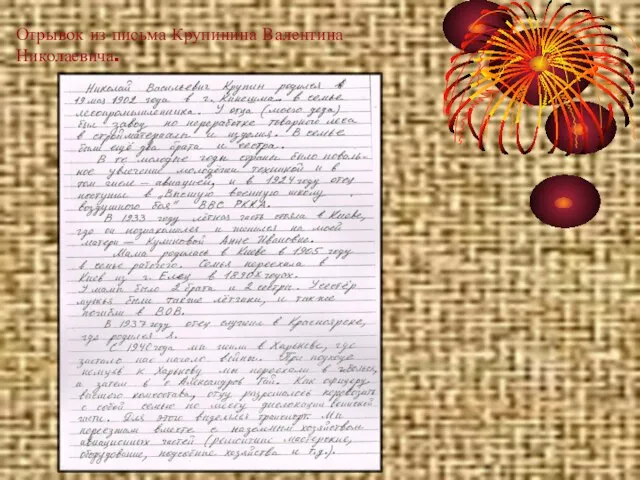 Отрывок из письма Крупинина Валентина
Николаевича.
Николай Васильевич Крупин родился
19 мая 1902 года в г. Кинешма в семье
лесопромышленника. У отца (моего деда)
был завод по переработке товарного леса
в стройматериалы и изделия. В семье
были ещё два брата и сестра.
В те молодые годы страны было поваль-
ное увлечение молодёжи техникой и в
том числе – авиацией, и в 1924 году отец
поступил в „Высшую военную школу
воздушного боя" ВВС РККА.
В 1933 году лётная часть стояла в Киеве,
где он познакомился и женился на моей
матери – Куликовой Анне Ивановне.
Мама родилась в Киеве в 1905 году
в семье рабочего. Семья переехала в
Киев из г. Елец в 1890х годах.
У мамы было 2 брата и 2 сестры. У сестёр
мужья были также лётчики, и также
погибли в В.О.В.
В 1937 году отец служил в Красноярске,
где родился я.
С 1940 года мы жили в Харькове, где
застало нас начало войны. При подходе
немцев к Харькову мы переехали в
а затем в с. Александров Гай. Как офицеру
высшего комсостава, отцу разрешалось перевозить
с собой семью по месту дислокации воинской
части. Для этого выделялся транспорт. Мы
переезжали вместе с наземным хозяйством
авиационных частей (ремонтные мастерские,
оборудование, подсобные хозяйства и т.д.).